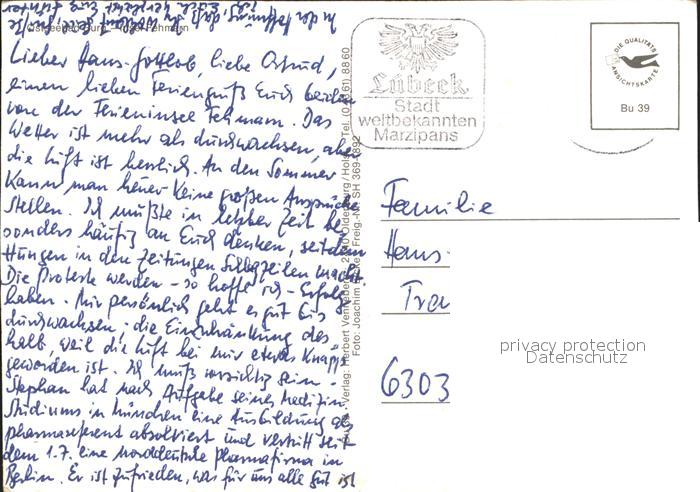 Ostseebad Burg - Insel Fehmarn
Lieber Hans-Gottlob, liebe Ostrud,
einen lieben Feriengruß Euch beiden
von der Ferieninsel Fehmarn. Das
Wetter ist mehr als durchwachsen, aber
die Luft ist herrlich. An den Sommer
kann man heuer keine großen Ansprüche
stellen. Ich mußte in letzter Zeit be
sonders häufig an Euch denken, seitdem
Hungen in den Zeitungen Schlagzeilen macht.
Die Proteste werden - so hoffe ich - Erfolg
haben. Mir persönlich geht es gut bis
durchwachsen; die Einschränkung des-
halb, weil die Luft bei mir etwas knapp
geworden ist. Ich muß vorsichtig sein.
Stephan hat nach Aufgabe seines Medizin
Studiums in München eine Ausbildung als
Pharmareferent absolviert und vertritt seit
dem 1.7. eine Norddeutsche Pharmafirma in
Berlin. Er ist zufrieden, was für uns alle gut ist
In der Hoffnung, daß
Verlag: Herbert
Foto: Joachim
Lübeck
Stadt
weltbekannten
Marzipans
DIE QUALITÄTS
ANSICHTSKARTE
Bu 39
Familie
Hans-
Tra
6303
privacy protection
Datenschutz